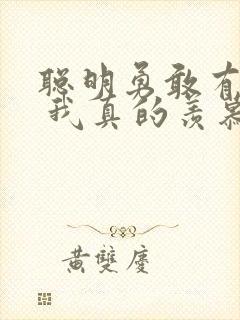 聪明勇敢有
我真的羡慕
黄雙慶